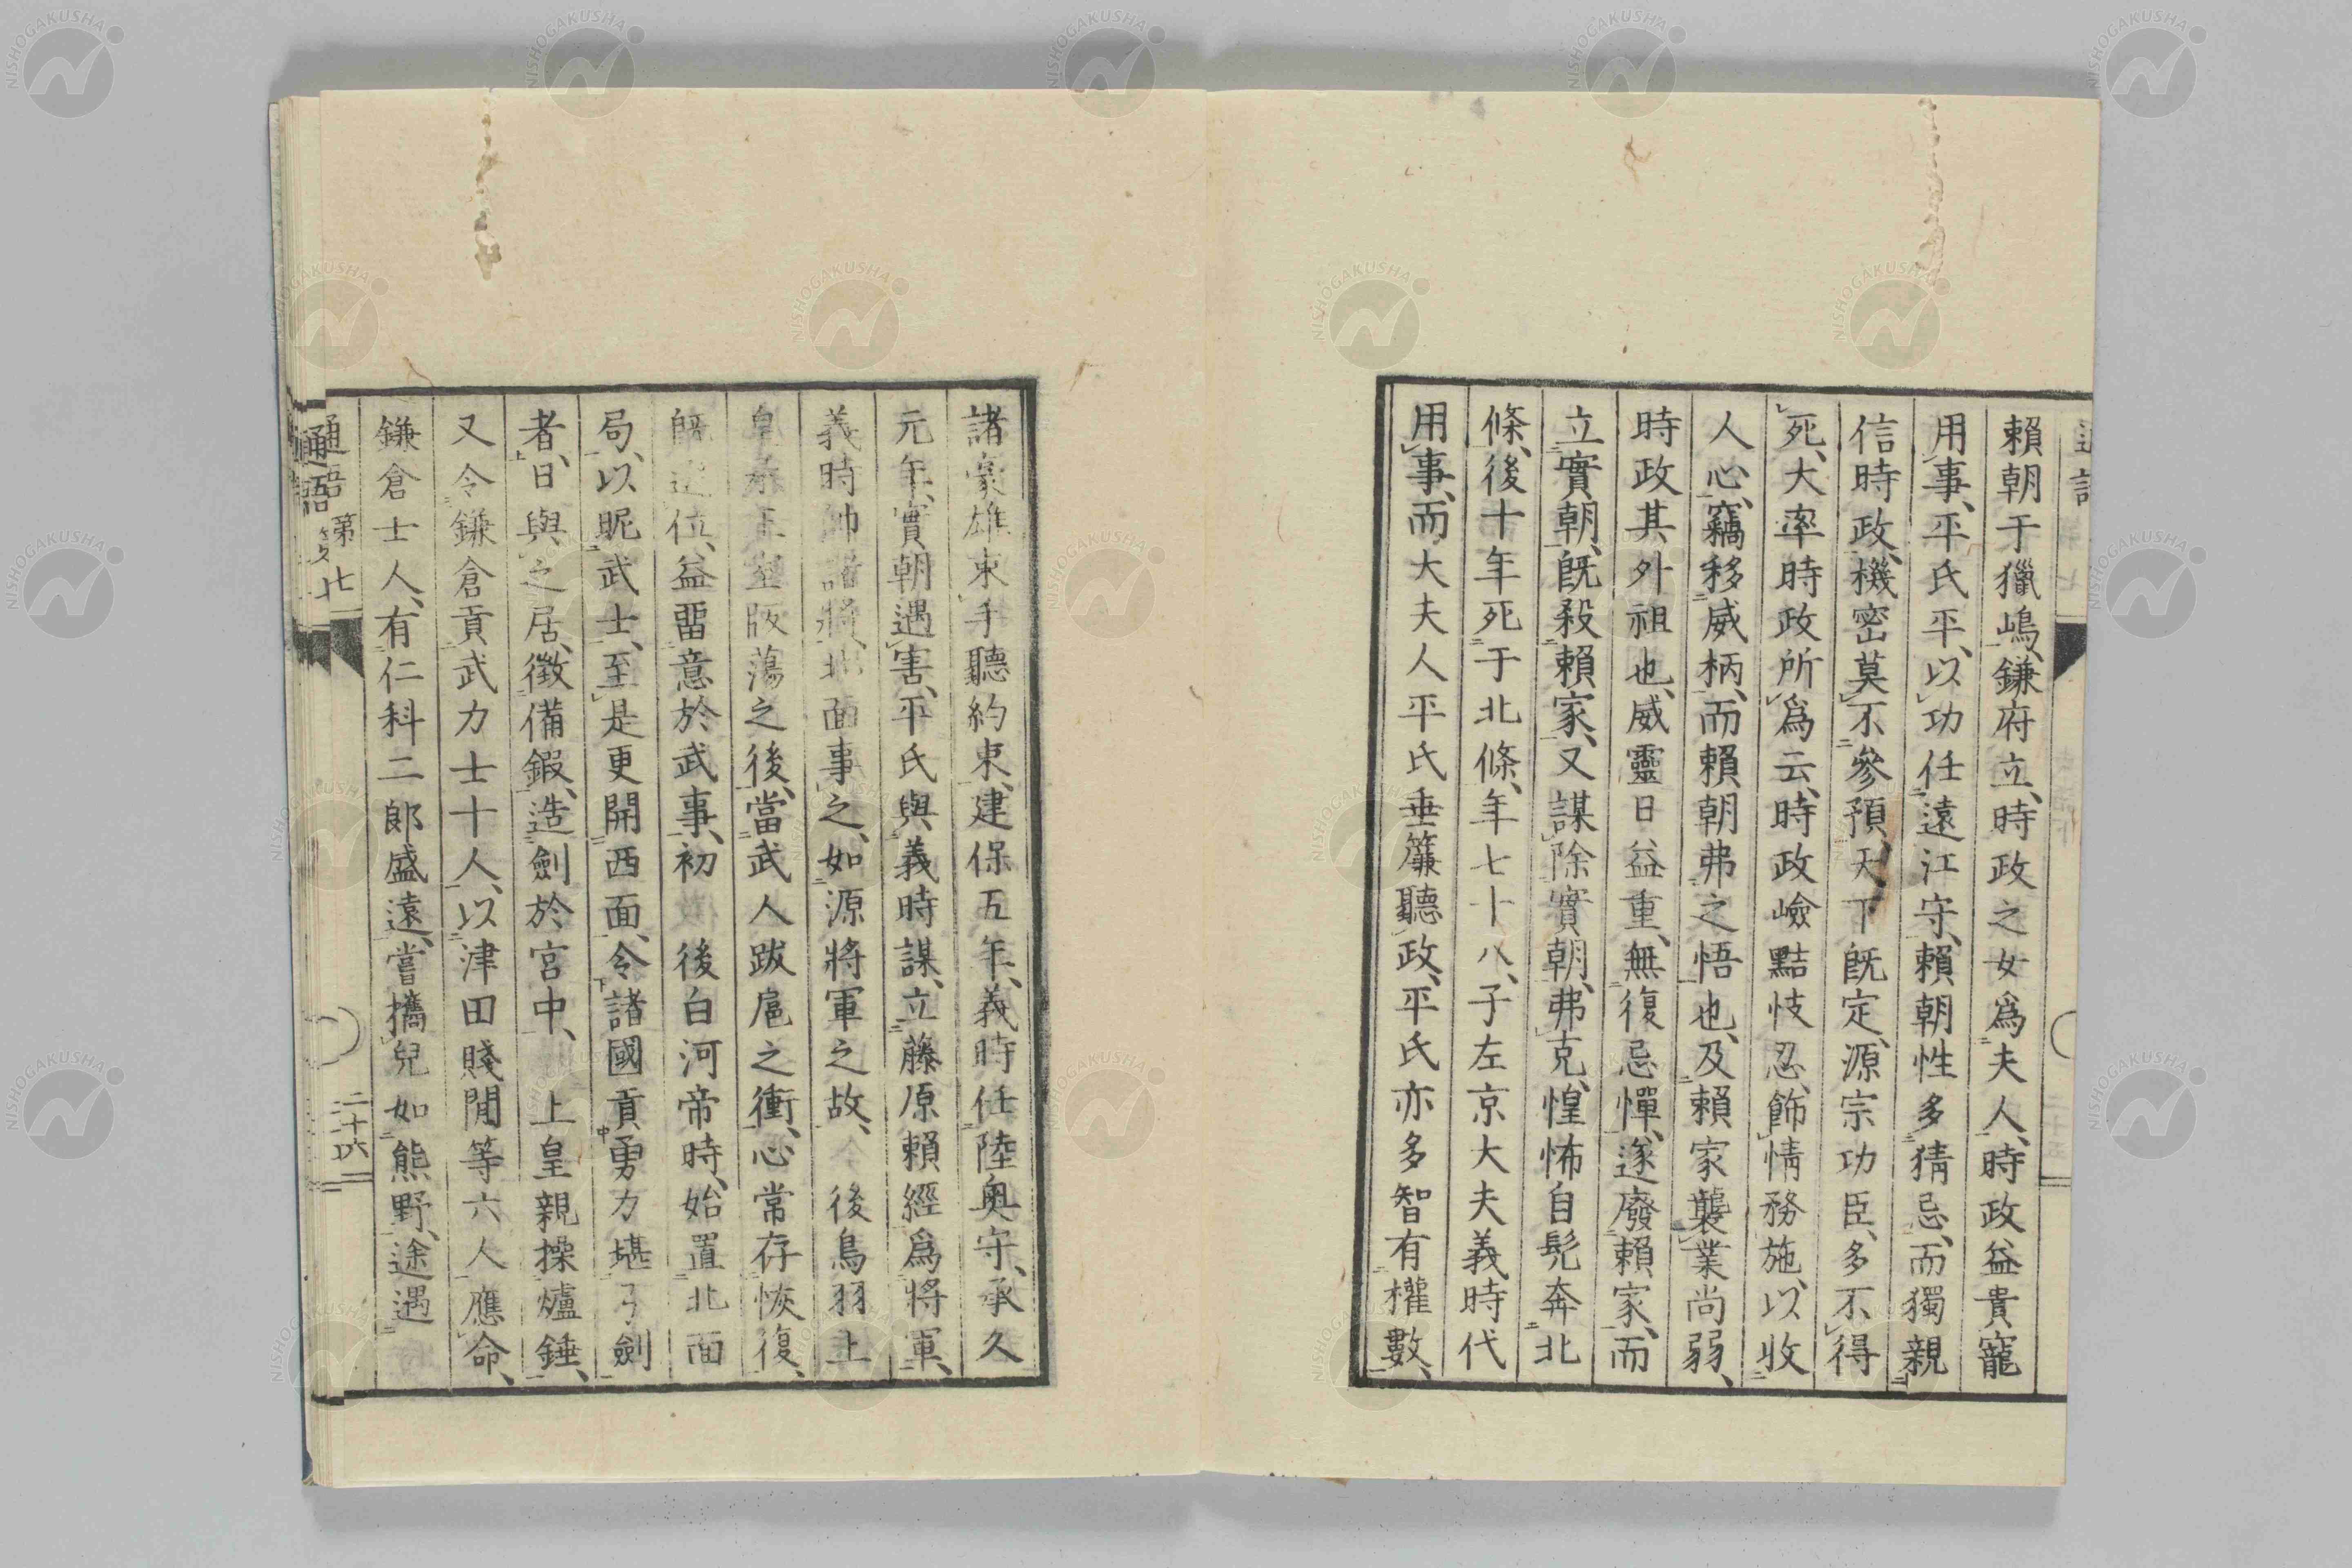 賴朝于獵嶋、鎌府立、時政之女爲夫人、時政益貴寵
用事、平氏平、以功任遠江守、賴朝性多猜忌、而獨親
信時政、機密莫不參預、天下既定、源宗功臣、多不得
死、大率時政所爲云、時政嶮黠忮忍、飾情務施、以收
人心、竊移威柄、而賴朝弗之悟也、及賴家襲業尚弱、
時政其外祖也、威靈日益重、無復忌憚、遂廢賴家、而
立實朝、既殺賴家、又謀除實朝、弗克、惶怖自髡奔北
條、後十年死于北條、年七十八、子左京大夫義時代
用事、而大夫人平氏垂簾聽政、平氏亦多智有權數、
諸豪雄束手聽約束、建保五年、義時任陸奥守、承久
元年、實朝遇害、平氏與義時謀、立藤原賴經爲將軍、
義時帥諸將、北面事之、如源將軍之故、今後鳥羽上
皇承王室版蕩之後、當武人跋扈之衝、心常存恢復、
既遜位、益畱意於武事、初 後白河帝時、始置北面
局、以昵武士、至是更開西面、令諸國貢勇力堪弓劍
者、日與之居、徵備鍜、造劍於宮中、 上皇親操爐錘、
又令鎌倉貢武力士十人、以津田賤閒等六人應命、
鎌倉士人、有仁科二郎盛遠、嘗攜兒如熊野、途遇
通語
第七
二十六
NISHOGAKUSHA